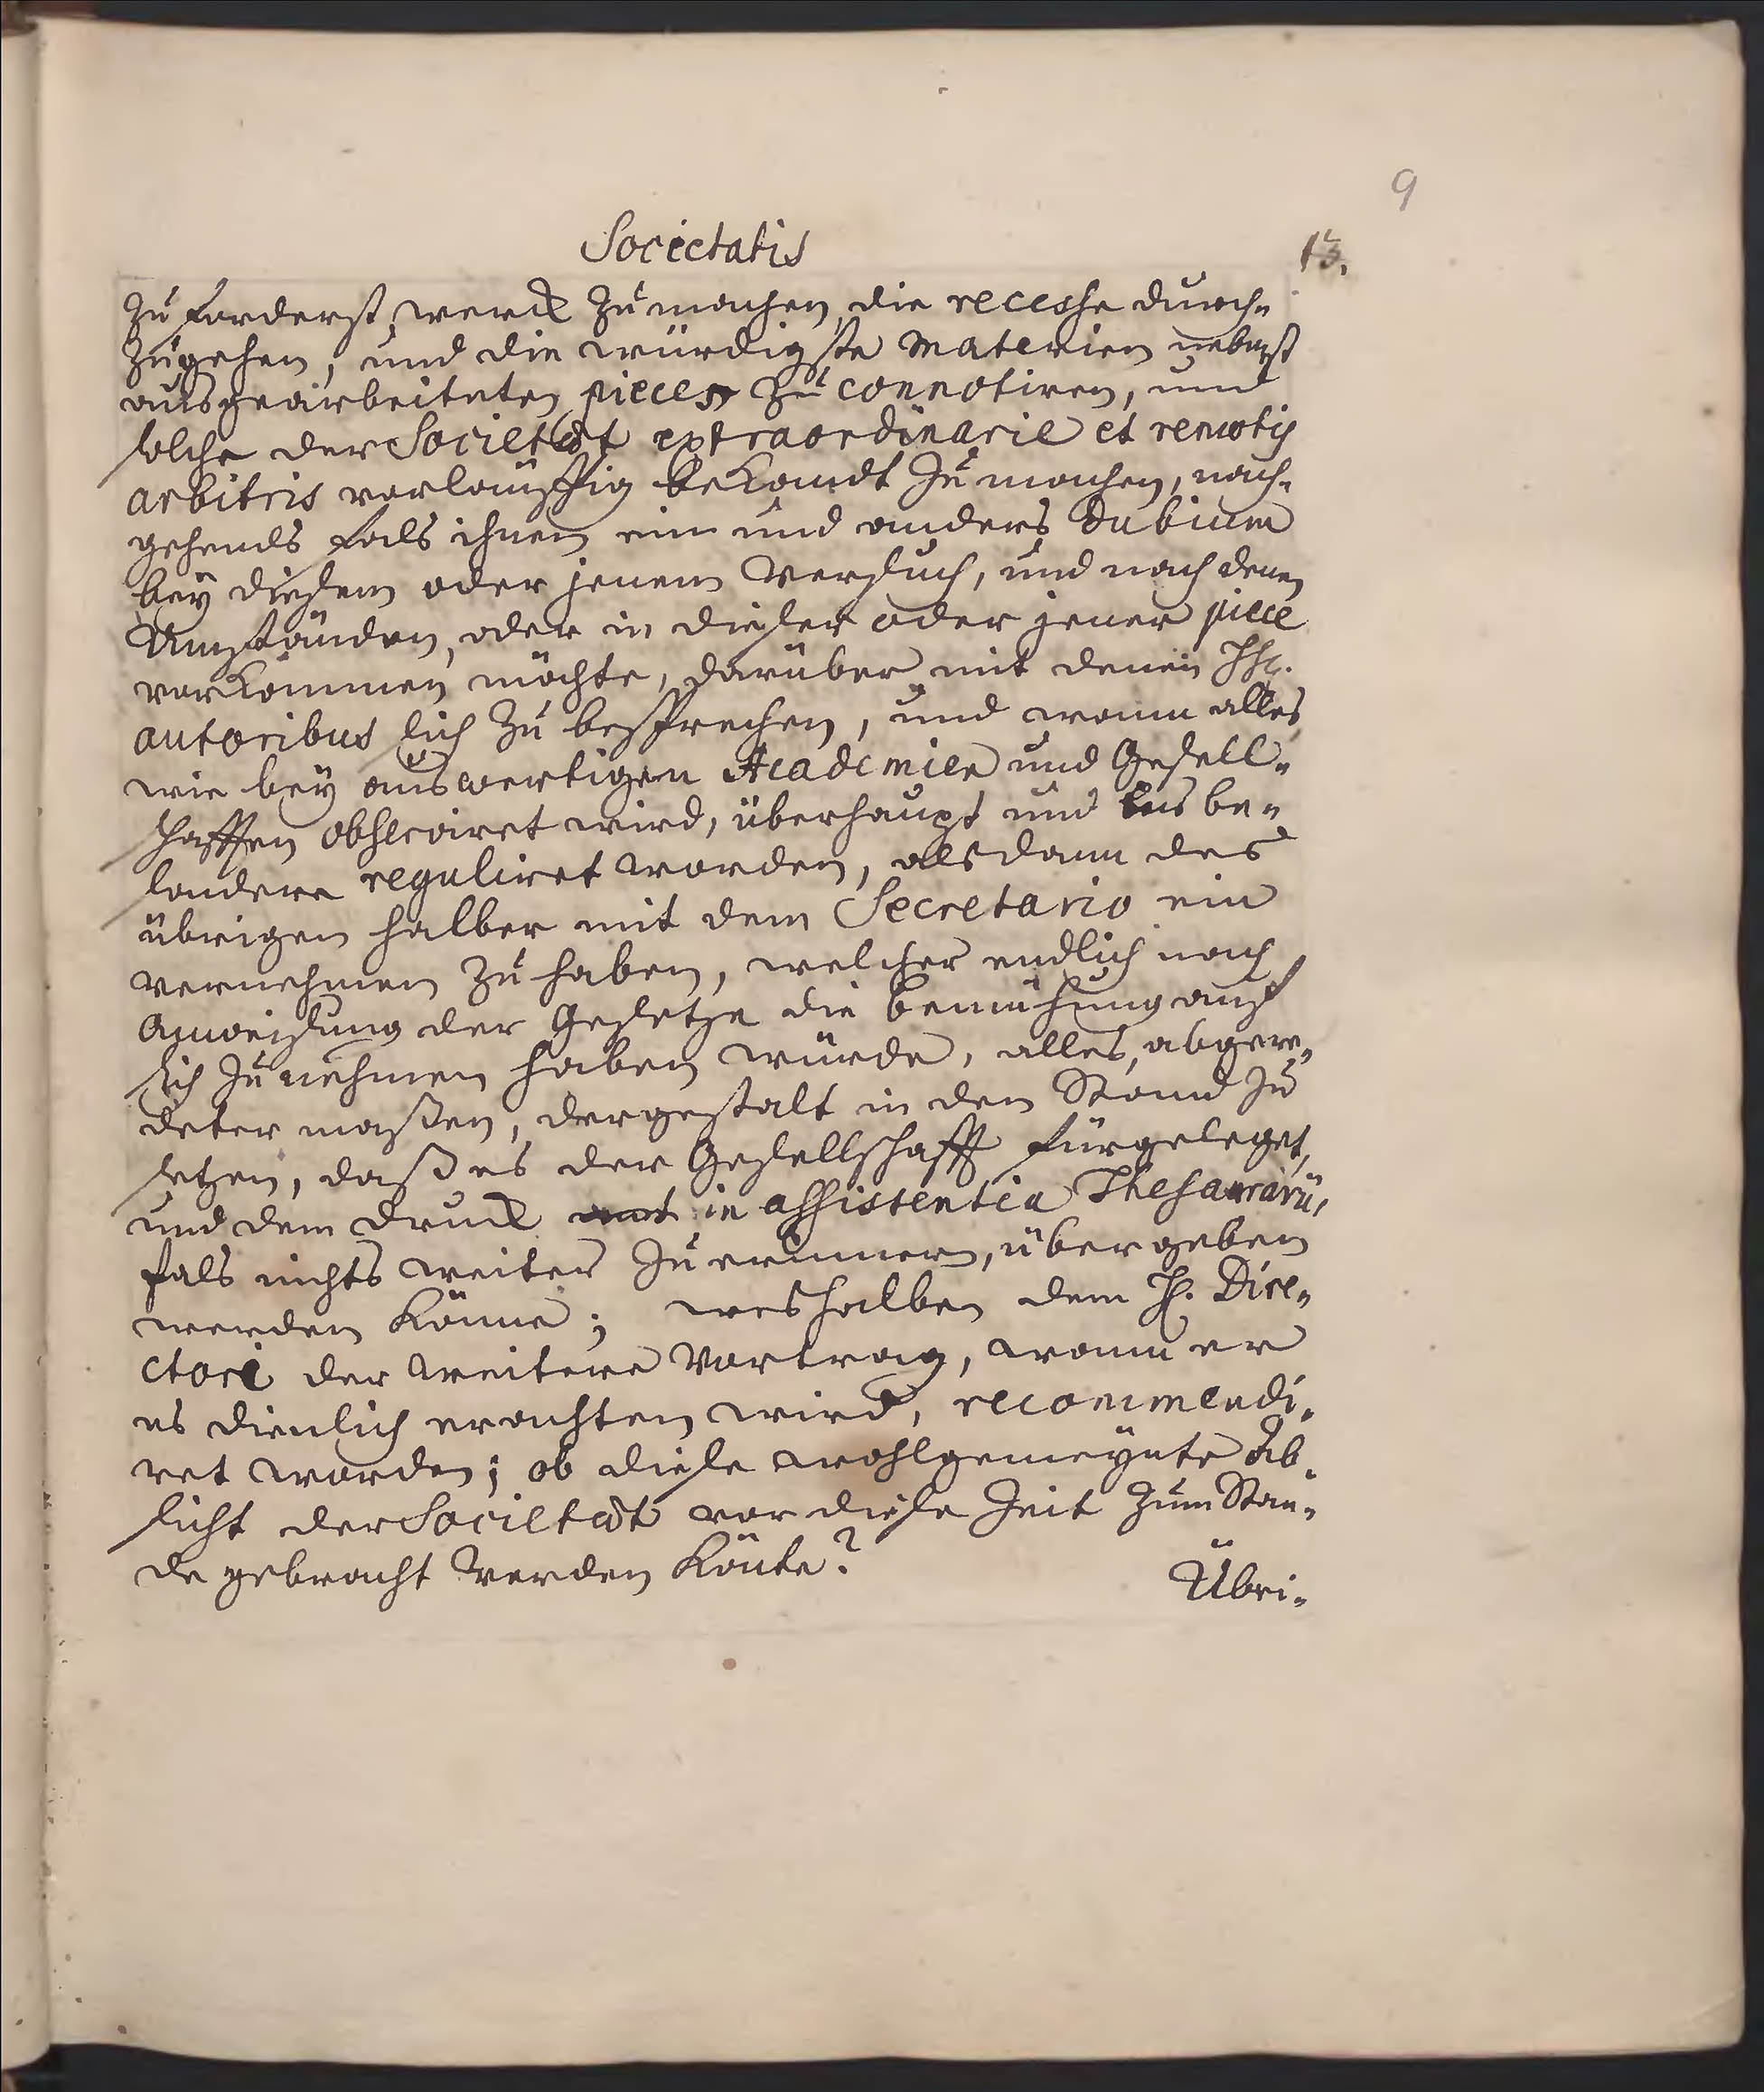 9
Societatis
13.
zu forderst werck zu machen, die recesse durch-
zugehen, und die würdigste Materien nebst
ausgearbeiteten pieces zu connotiren, und
solche der Societæt extraordinarie et remotis
arbitris vorläuffig bekandt zu machen, nach-
gehends fals ihnen ein und anders Dubium
bey diesem oder jenem Versuch, und nach denen
Umständen, oder in dieser oder jener piece
vorkommen möchte, darüber mit denen HH.
autoribus sich zu besprechen, und wann alles
wie bey auswertigen Academien und Gesell-
schafften observiret wird, überhaupt und ins be-
sondere reguliret worden, alsdann des
übrigen halber mit dem Secretario ein
vernehmen zu haben, welcher endlich nach
Anweisung der Gesetze die bemühung auf
sich zu nehmen haben würde, alles, abgere-
deter maßen, dergestalt in den Stand zu
setzen, daß es der Gesellschafft fürgeleget,
und dem Druck in assistentia Thesaurarii,
fals nichts weiter zu erinnern, übergeben
werden könne; weshalben dem H. Dire-
ctori der weitere Vortrag, wann er
es dienlich erachten wird, recommendi-
ret worden; ob diese wohlgemeynte Ab-
sicht der Societæt vor diese Zeit zum Stan-
de gebracht werden könte?
Übri-